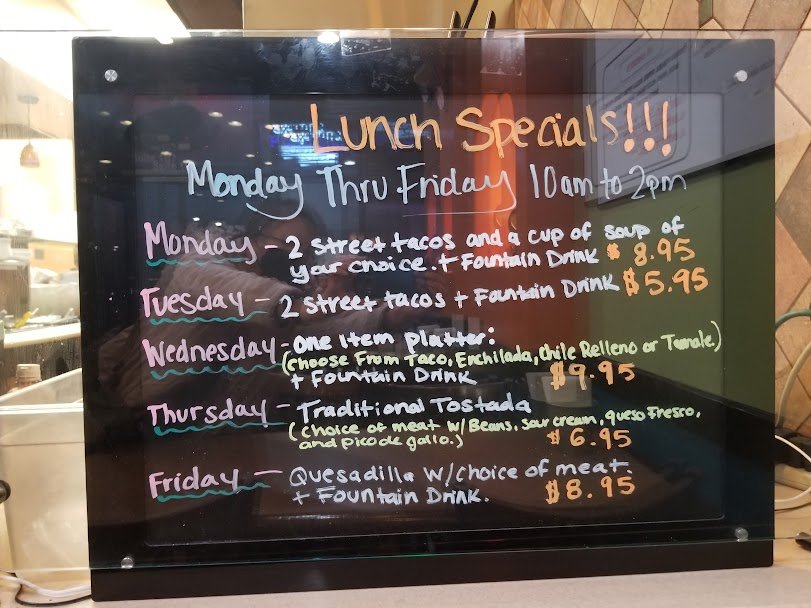 Lunch Specials!!!
Monday Thru Friday 10am to 2pm
Monday - 2 street tacos and a cup of soup of
your choice. + Fountain Drink $ 8.95
Tuesday - 2 street tacos + Fountain Drink $5.95
Wednesday - one Item platter:
(choose From Taco, Enchilada, Chile Relleno or Tamale)
+ Fountain Drink $9.95
Thursday - Traditional Tostada
(choice of meat w/Beans, sour cream, queso Fresco,
and pico de gallo.) $ 6.95
Friday - Quesadilla w/choice of meat.
+ Fountain Drink. $8.95